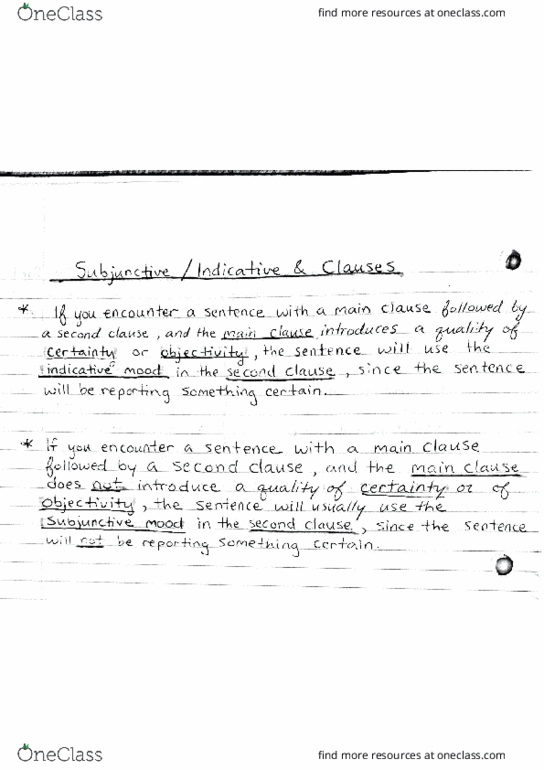 OneClass
find more resources at oneclass.com
Subjunctive / Indicative & Clauses
* If you encounter a sentence with a main clause followed by
a second clause, and the main clause introduces a quality of
certainty or objectivity, the sentence will use the
indicative mood in the second clause, since the sentence
will be reporting something certain.
* If you encounter a sentence with a main clause
followed by a second clause, and the main clause
does not introduce a quality of certainty or of
objectivity, the sentence will usually use the
subjunctive mood in the second clause, since the sentence
will not be reporting something certain.
OneClass
find more resources at oneclass.com